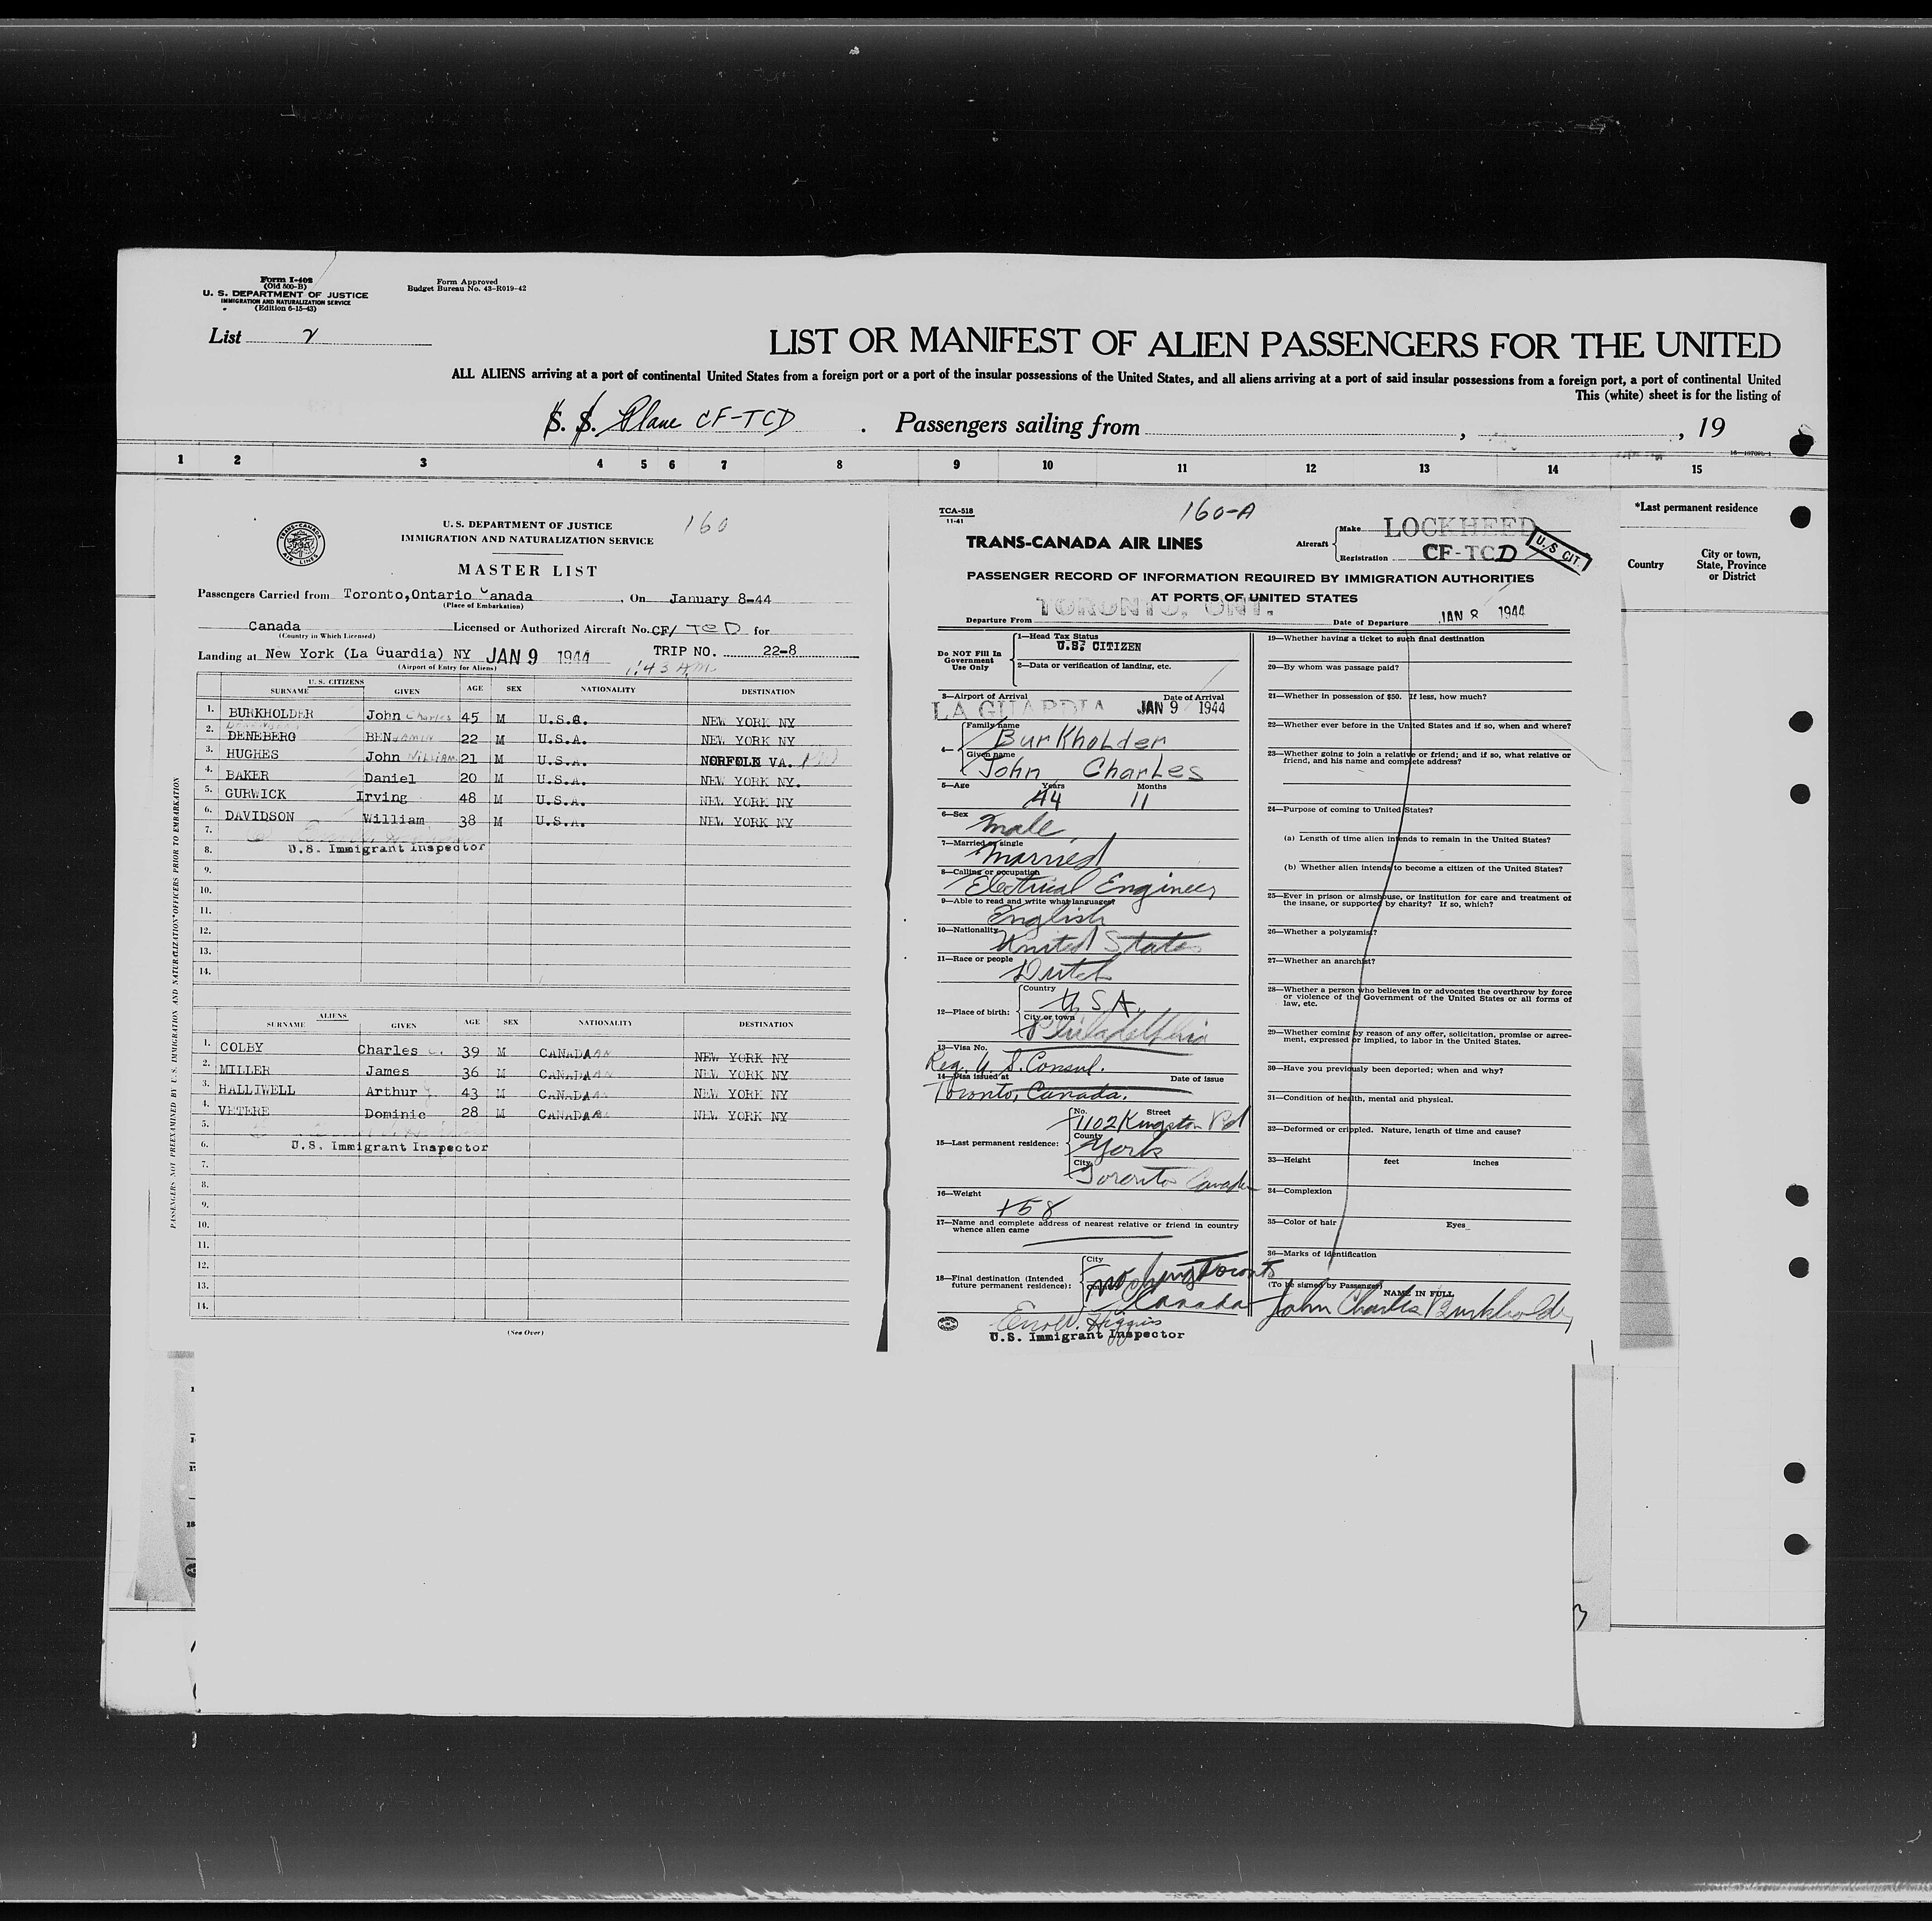 Form I-402
(Old 500-B)
U. S. DEPARTMENT OF JUSTICE
IMMIGRATION AND NATURALIZATION SERVICE
(Edition 6-15-43)
Form Approved
Budget Bureau No. 43-R019-42
List 2
LIST OR MANIFEST OF ALIEN PASSENGERS FOR THE UNITED
ALL ALIENS arriving at a port of continental United States from a foreign port or a port of the insular possessions of the United States, and all aliens arriving at a port of said insular possessions from a foreign port, a port of continental United
This (white) sheet is for the listing of
S. S. Plane CF-TCD . Passengers sailing from , , 19
1 2 3 4 5 6 7 8 9 10 11 12 13 14 15
*Last permanent residence
Country
City or town, State, Province or District
TRANS-CANADA AIR LINES
U. S. DEPARTMENT OF JUSTICE
IMMIGRATION AND NATURALIZATION SERVICE
160
MASTER LIST
Passengers Carried from Toronto,Ontario Canada, On January 8-44
(Place of Embarkation)
Canada Licensed or Authorized Aircraft No. CF/ TCD for
(Country in Which Licensed)
Landing at New York (La Guardia) NY JAN 9 1944 TRIP NO. 22-8
(Airport of Entry for Aliens)
1:43 AM.
U. S. CITIZENS
SURNAME GIVEN AGE SEX NATIONALITY DESTINATION
1. BURKHOLDER John Charles 45 M U.S.A. NEW YORK NY
2. DENEBERG BENJAMIN 22 M U.S.A. NEW YORK NY
3. HUGHES John William 21 M U.S.A. NORFOLK VA.
4. BAKER Daniel 20 M U.S.A. NEW YORK NY.
5. GURWICK Irving 48 M U.S.A. NEW YORK NY
6. DAVIDSON William 38 M U.S.A. NEW YORK NY
7.
8. U.S. Immigrant Inspector
9.
10.
11.
12.
13.
14.
ALIENS
SURNAME GIVEN AGE SEX NATIONALITY DESTINATION
1. COLBY Charles C. 39 M CANADIAN NEW YORK NY
2. MILLER James 36 M CANADIAN NEW YORK NY
3. HALLIWELL Arthur 43 M CANADIAN NEW YORK NY
4. VETERE Dominic 28 M CANADIAN NEW YORK NY
5.
6. U.S. Immigrant Inspector
7.
8.
9.
10.
11.
12.
13.
14.
(See Over)
PASSENGERS NOT PREEXAMINED BY U.S. IMMIGRATION AND NATURALIZATION OFFICERS PRIOR TO EMBARKATION
TCA-518
11-41
160-A
TRANS-CANADA AIR LINES
Aircraft Make LOCKHEED
Registration CF-TCD
U. S CIT.
PASSENGER RECORD OF INFORMATION REQUIRED BY IMMIGRATION AUTHORITIES
AT PORTS OF UNITED STATES
Departure From TORONTO, ONT. Date of Departure JAN 8 1944
Do NOT Fill In Government Use Only
1—Head Tax Status
U.S. CITIZEN
2—Data or verification of landing, etc.
3—Airport of Arrival Date of Arrival
LA GUARDIA JAN 9 1944
4— Family name
Burkholder
Given name
John Charles
5—Age Years Months
44 11
6—Sex
Male
7—Married or single
Married
8—Calling or occupation
Electrical Engineer
9—Able to read and write what languages?
English
10—Nationality
United States
11—Race or people
Dutch
12—Place of birth: Country
U.S.A.
City or town
Philadelphia
13—Visa No.
Reg. U.S. Consul.
14—Visa issued at Date of issue
Toronto, Canada.
15—Last permanent residence: No. Street
1102 Kingston Rd
County
York
City
Toronto Canada
16—Weight
158
17—Name and complete address of nearest relative or friend in country whence alien came
18—Final destination (Intended future permanent residence): City
Toronto
Canada
Errol W. Higgins
U.S. Immigrant Inspector
19—Whether having a ticket to such final destination
20—By whom was passage paid?
21—Whether in possession of $50. If less, how much?
22—Whether ever before in the United States and if so, when and where?
23—Whether going to join a relative or friend; and if so, what relative or
friend, and his name and complete address?
24—Purpose of coming to United States?
(a) Length of time alien intends to remain in the United States?
(b) Whether alien intends to become a citizen of the United States?
25—Ever in prison or almshouse, or institution for care and treatment of
the insane, or supported by charity? If so, which?
26—Whether a polygamist?
27—Whether an anarchist?
28—Whether a person who believes in or advocates the overthrow by force
or violence of the Government of the United States or all forms of
law, etc.
29—Whether coming by reason of any offer, solicitation, promise or agree-
ment, expressed or implied, to labor in the United States.
30—Have you previously been deported; when and why?
31—Condition of health, mental and physical.
32—Deformed or crippled. Nature, length of time and cause?
33—Height feet inches
34—Complexion
35—Color of hair Eyes
36—Marks of identification
(To be signed by Passenger) NAME IN FULL
John Charles Burkholder